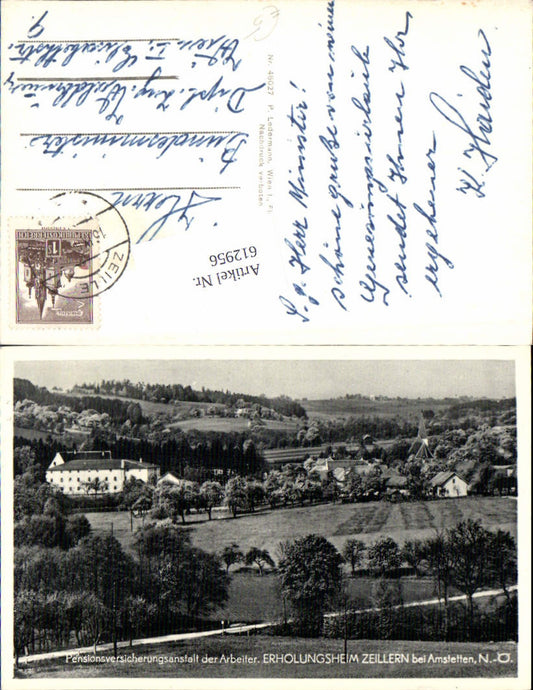 Herrn
Bundesminister
Dipl. Ing. K. Waldbrunner
Wien I., Elisabethstr.
9.
Nr. 46027 P. Ledermann, Wien I., Fl.
Nachdruck verboten
S. g. Herr Minister!
schöne Grüße von meinem
Genesungsurlaub
sendet Ihnen Ihr
ergebener
K. Haiden
ZEILLE
1S
REPUBLIK ÖSTERREICH
Artikel Nr.
612956
Pensionsversicherungsanstalt der Arbeiter. ERHOLUNGSHEIM ZEILLERN bei Amstetten, N.-Ö.